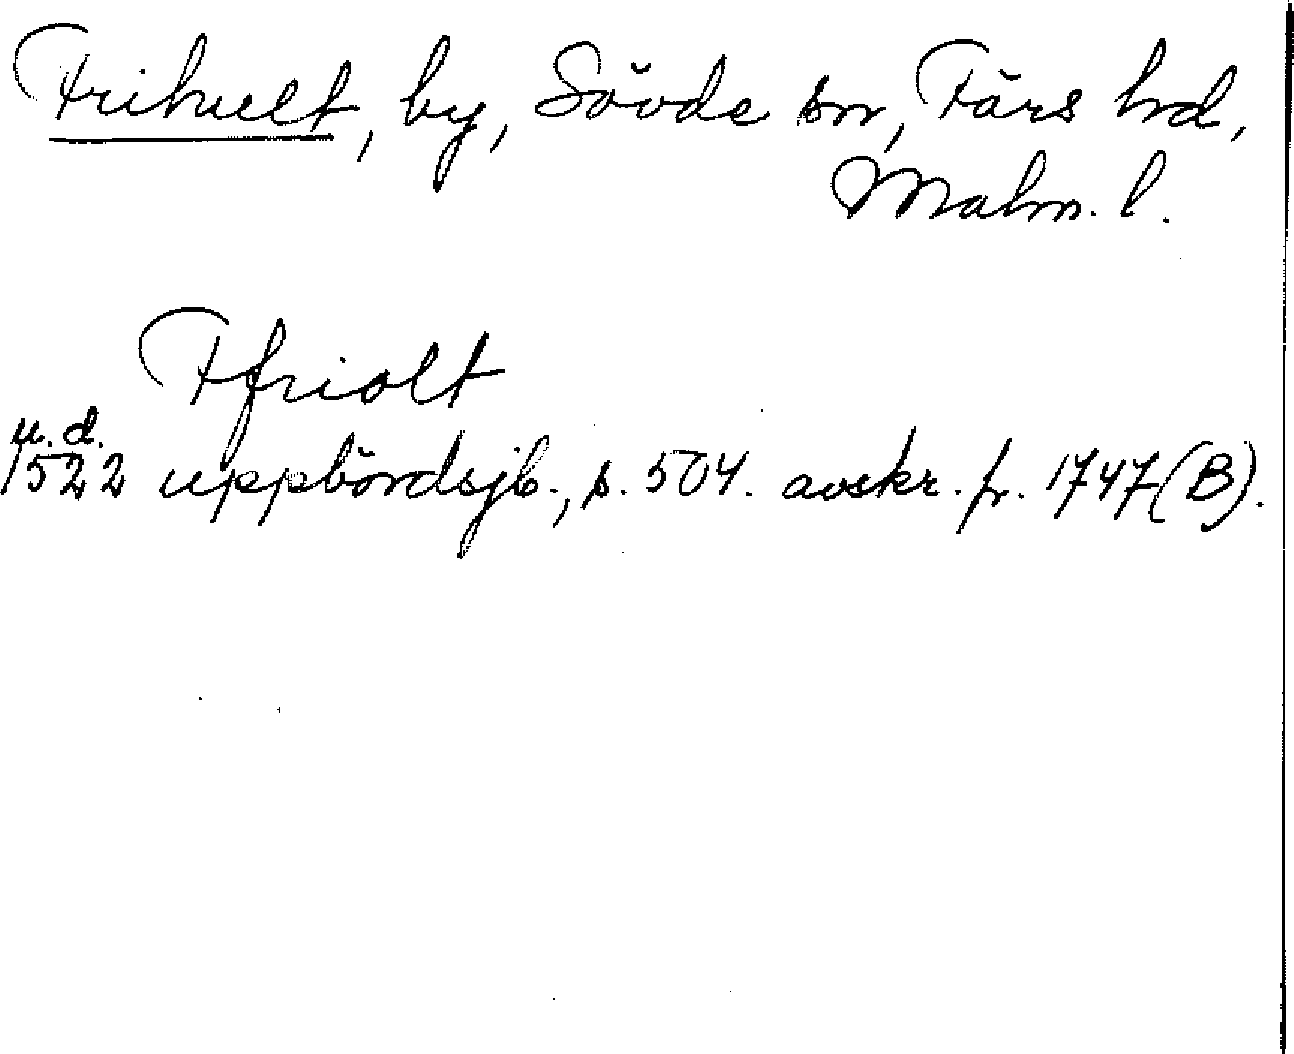 Frihult, by, Sövde sn, Färs hd,
Malm. l.
Ffriolt
u. d.
1522 uppbördsjb., s. 504. avskr. fr. 1747 (B).